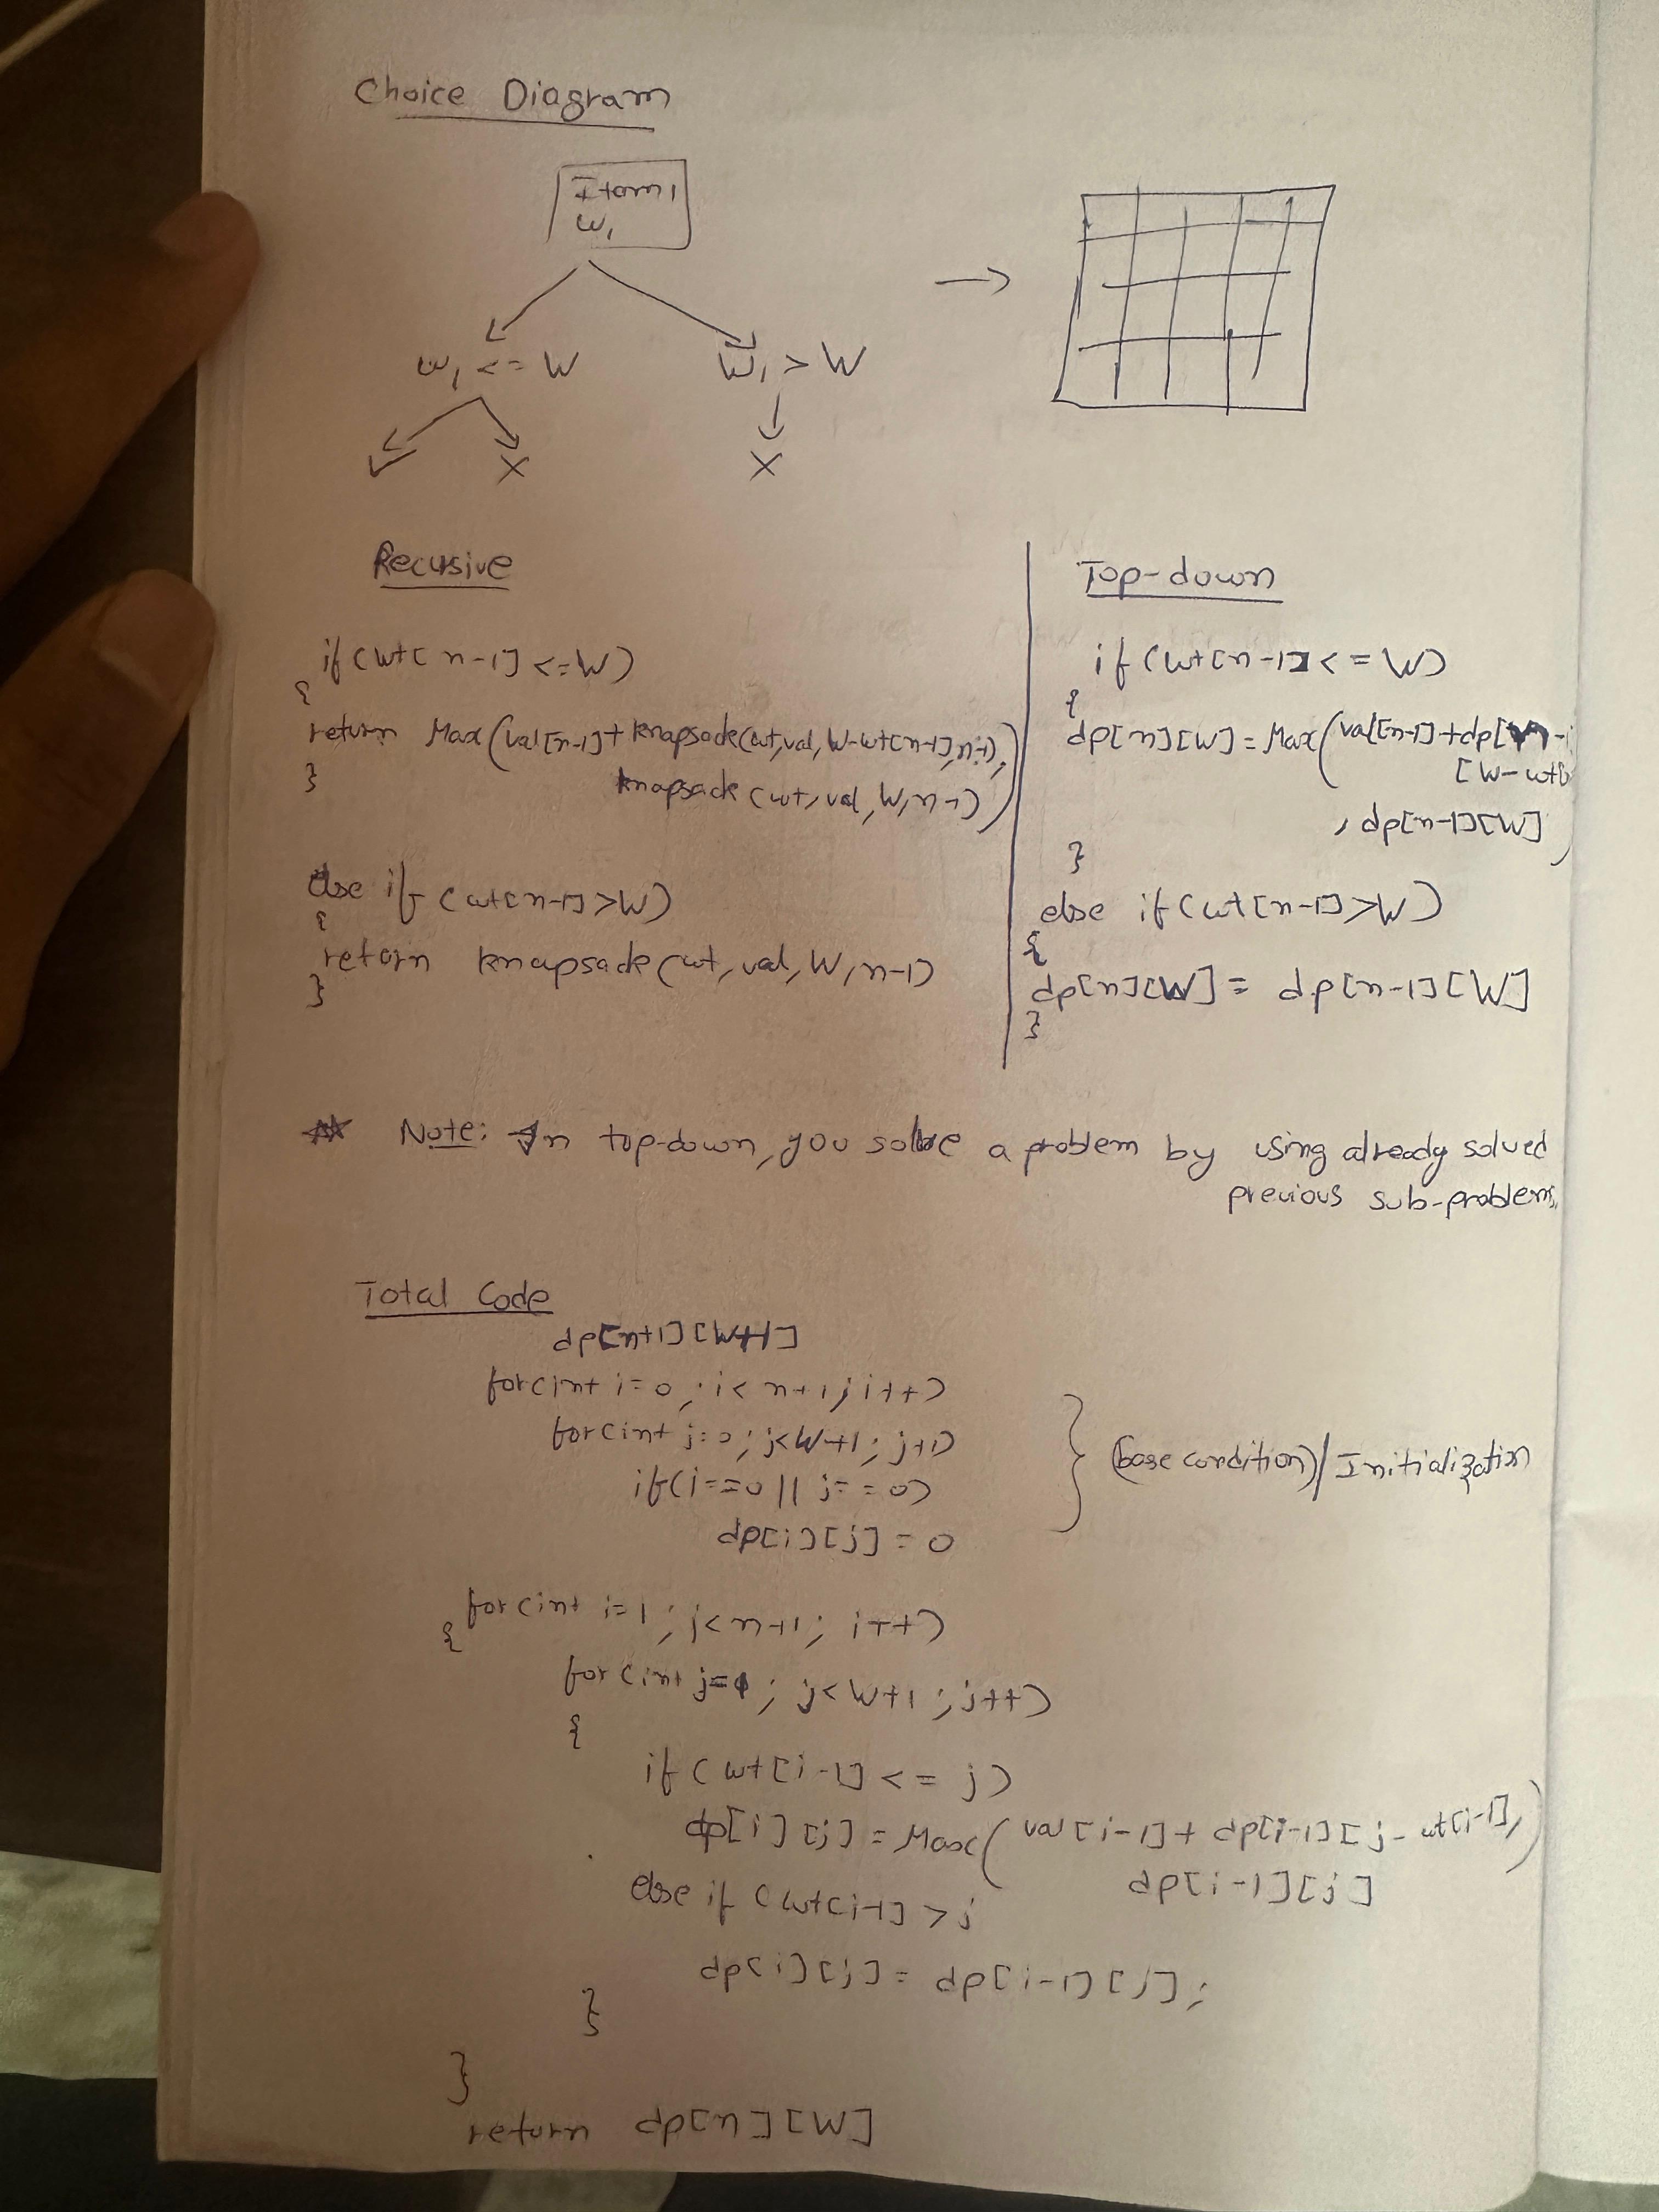 Choice Diagram
Item 1
w1
w1 <= W
W1 > W
✓ X
X
Recursive
if (wt[n-1] <= W)
{
return Max(val[n-1] + knapsack(wt, val, W-wt[n-1], n-1),
knapsack(wt, val, W, n-1))
}
else if (wt[n-1] > W)
{
return knapsack(wt, val, W, n-1)
}
Top-down
if (wt[n-1] <= W)
{
dp[n][W] = Max(val[n-1] + dp[n-1
[W-wt[
, dp[n-1][W]
)
}
else if (wt[n-1] > W)
{
dp[n][W] = dp[n-1][W]
}
Note: In top-down, you solve a problem by using already solved
previous sub-problems.
Total Code
dp[n+1][W+1]
for(int i=0; i<n+1; i++)
for(int j=0; j<W+1; j++)
if(i==0 || j==0)
dp[i][j] = 0
(base condition) / Initialization
for(int i=1; j<n+1; i++)
{
for(int j=1; j<W+1; j++)
{
if (wt[i-1] <= j)
dp[i][j] = Max(val[i-1] + dp[i-1][j-wt[i-1],
dp[i-1][j])
else if (wt[i-1] > j
dp[i][j] = dp[i-1][j];
}
}
return dp[n][W]